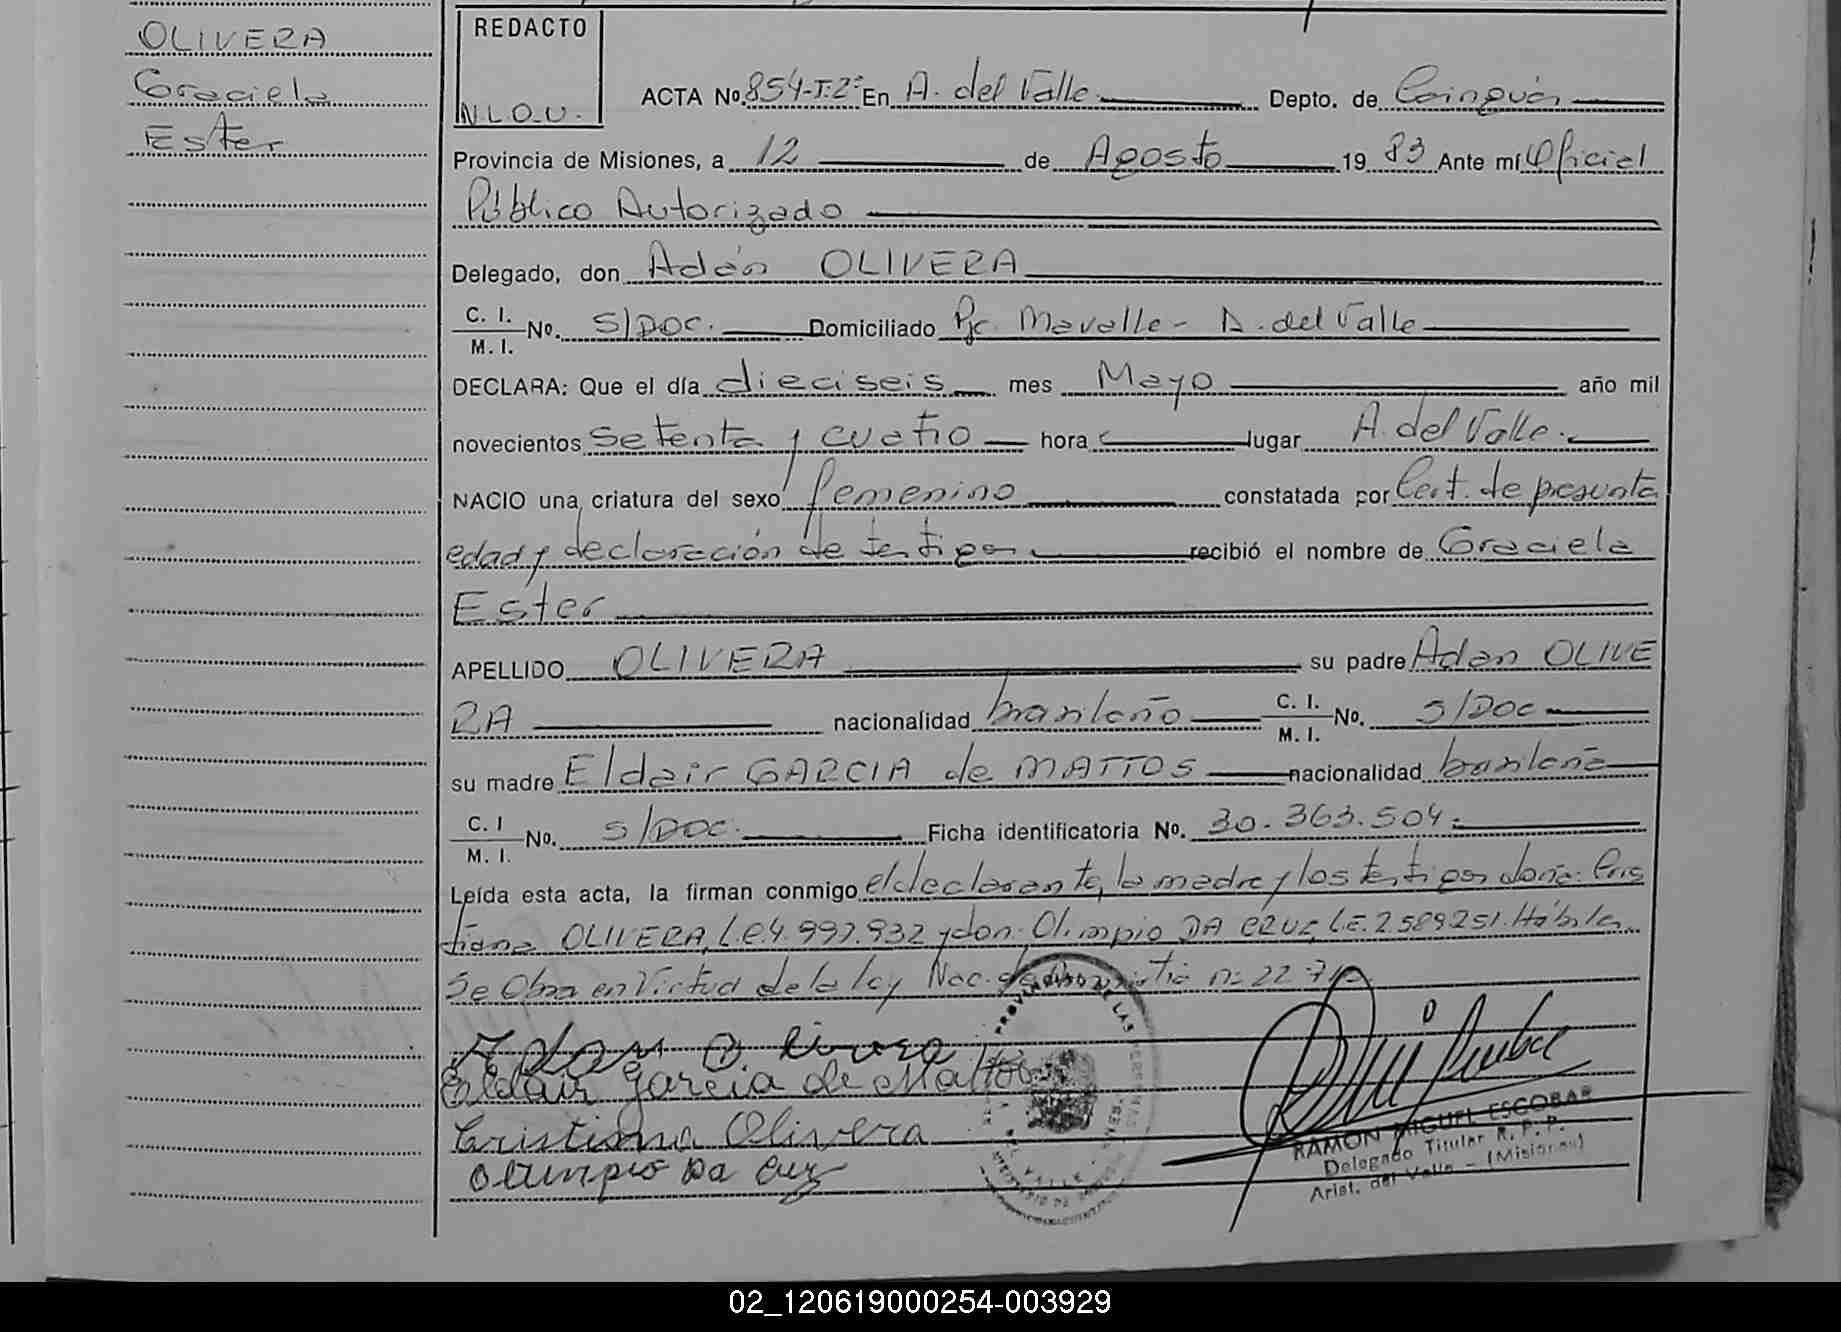 OLIVERA
Graciela
Ester
REDACTO
N.L.O.U.
ACTA No. 854-T.2º En A. del Valle Depto. de Cainguás
Provincia de Misiones, a 12 de Agosto 1983 Ante mí Oficial
Público Autorizado
Delegado, don Adán OLIVERA
C. I. M. I. No. S/DOC. Domiciliado Pje. Mavalle - A. del Valle
DECLARA: Que el día dieciseis mes Mayo año mil
novecientos setenta y cuatro hora lugar A. del Valle.
NACIO una criatura del sexo femenino constatada por Cert. de presunta
edad y declaración de testigos recibió el nombre de Graciela
Ester
APELLIDO OLIVERA su padre Adan OLIVE
RA nacionalidad brasileño C. I. M. I. No. S/DOC
su madre Eldair GARCIA de MATTOS nacionalidad brasileña
C. I M. I. No. S/DOC. Ficha identificatoria No. 30.363.504.
Leída esta acta, la firman conmigo el declarante, la madre y los testigos doña: Cris
tiana OLIVERA, L.C. 4.997.932 y don: Olimpio DA CRUZ, L.E. 2.589.251. Hábiles.
Se Obra en Virtud de la ley Nac. de Amnistia nº 22.
Adan Olivera
Eldair Garcia de Mattos
Cristiana Olivera
Olimpio Da Cruz
PROVINCIA DE LAS
RAMON MIGUEL ESCOBAR
Delegado Titular R. P. P.
Arist. del Valle - (Misiones)
02_120619000254-003929